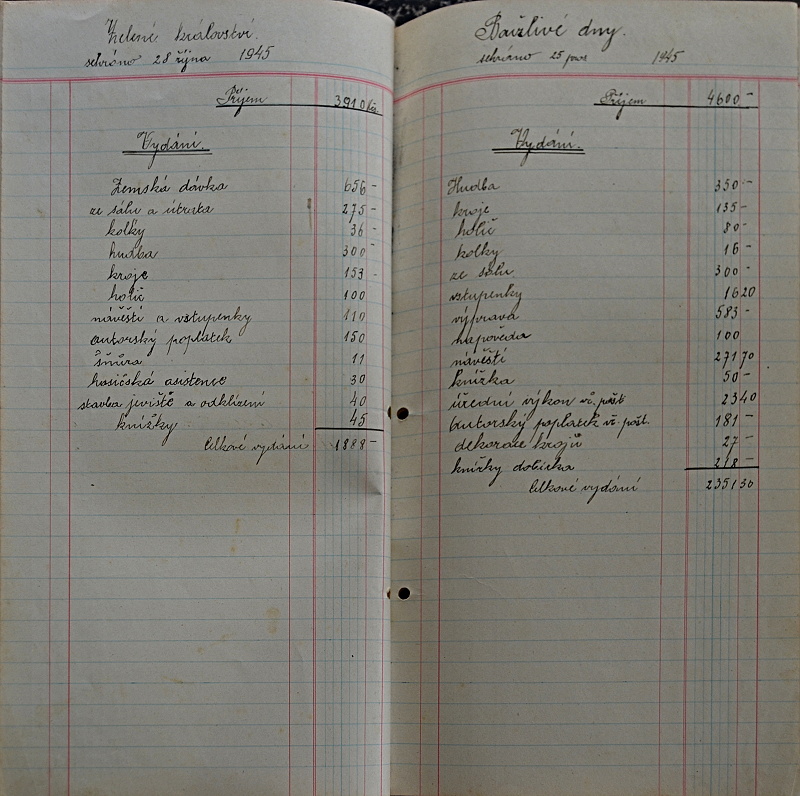 Zelené království.
sehráno 28 října 1945
Příjem 3910 Kčs
Vydání.
Zemská dávka 656 -
ze sálu a útrata 275 -
kolky 36 -
hudba 300 -
kroje 153 -
holič 100
návěstí a vstupenky 110
autorský poplatek 150
šňůra 11
hasičská asistence 30
stavba jeviště a odklizení 40
knížky 45
Celkové vydání 1888 -
Bouřlivé dny.
sehráno 25 pros 1945
Příjem 4600 -
Vydání.
Hudba 350 -
kroje 135 -
holič 80 -
kolky 16 -
ze sálu 300 -
vstupenky 1620
výprava 583 -
nápověda 100
návěstí 27170
knížka 50 -
úřední výkon vč. pošt 2340
Autorský poplatek vč. pošt. 181 -
dekorace krojů 27 -
knížky dobírka 218 -
Celkové vydání 235130